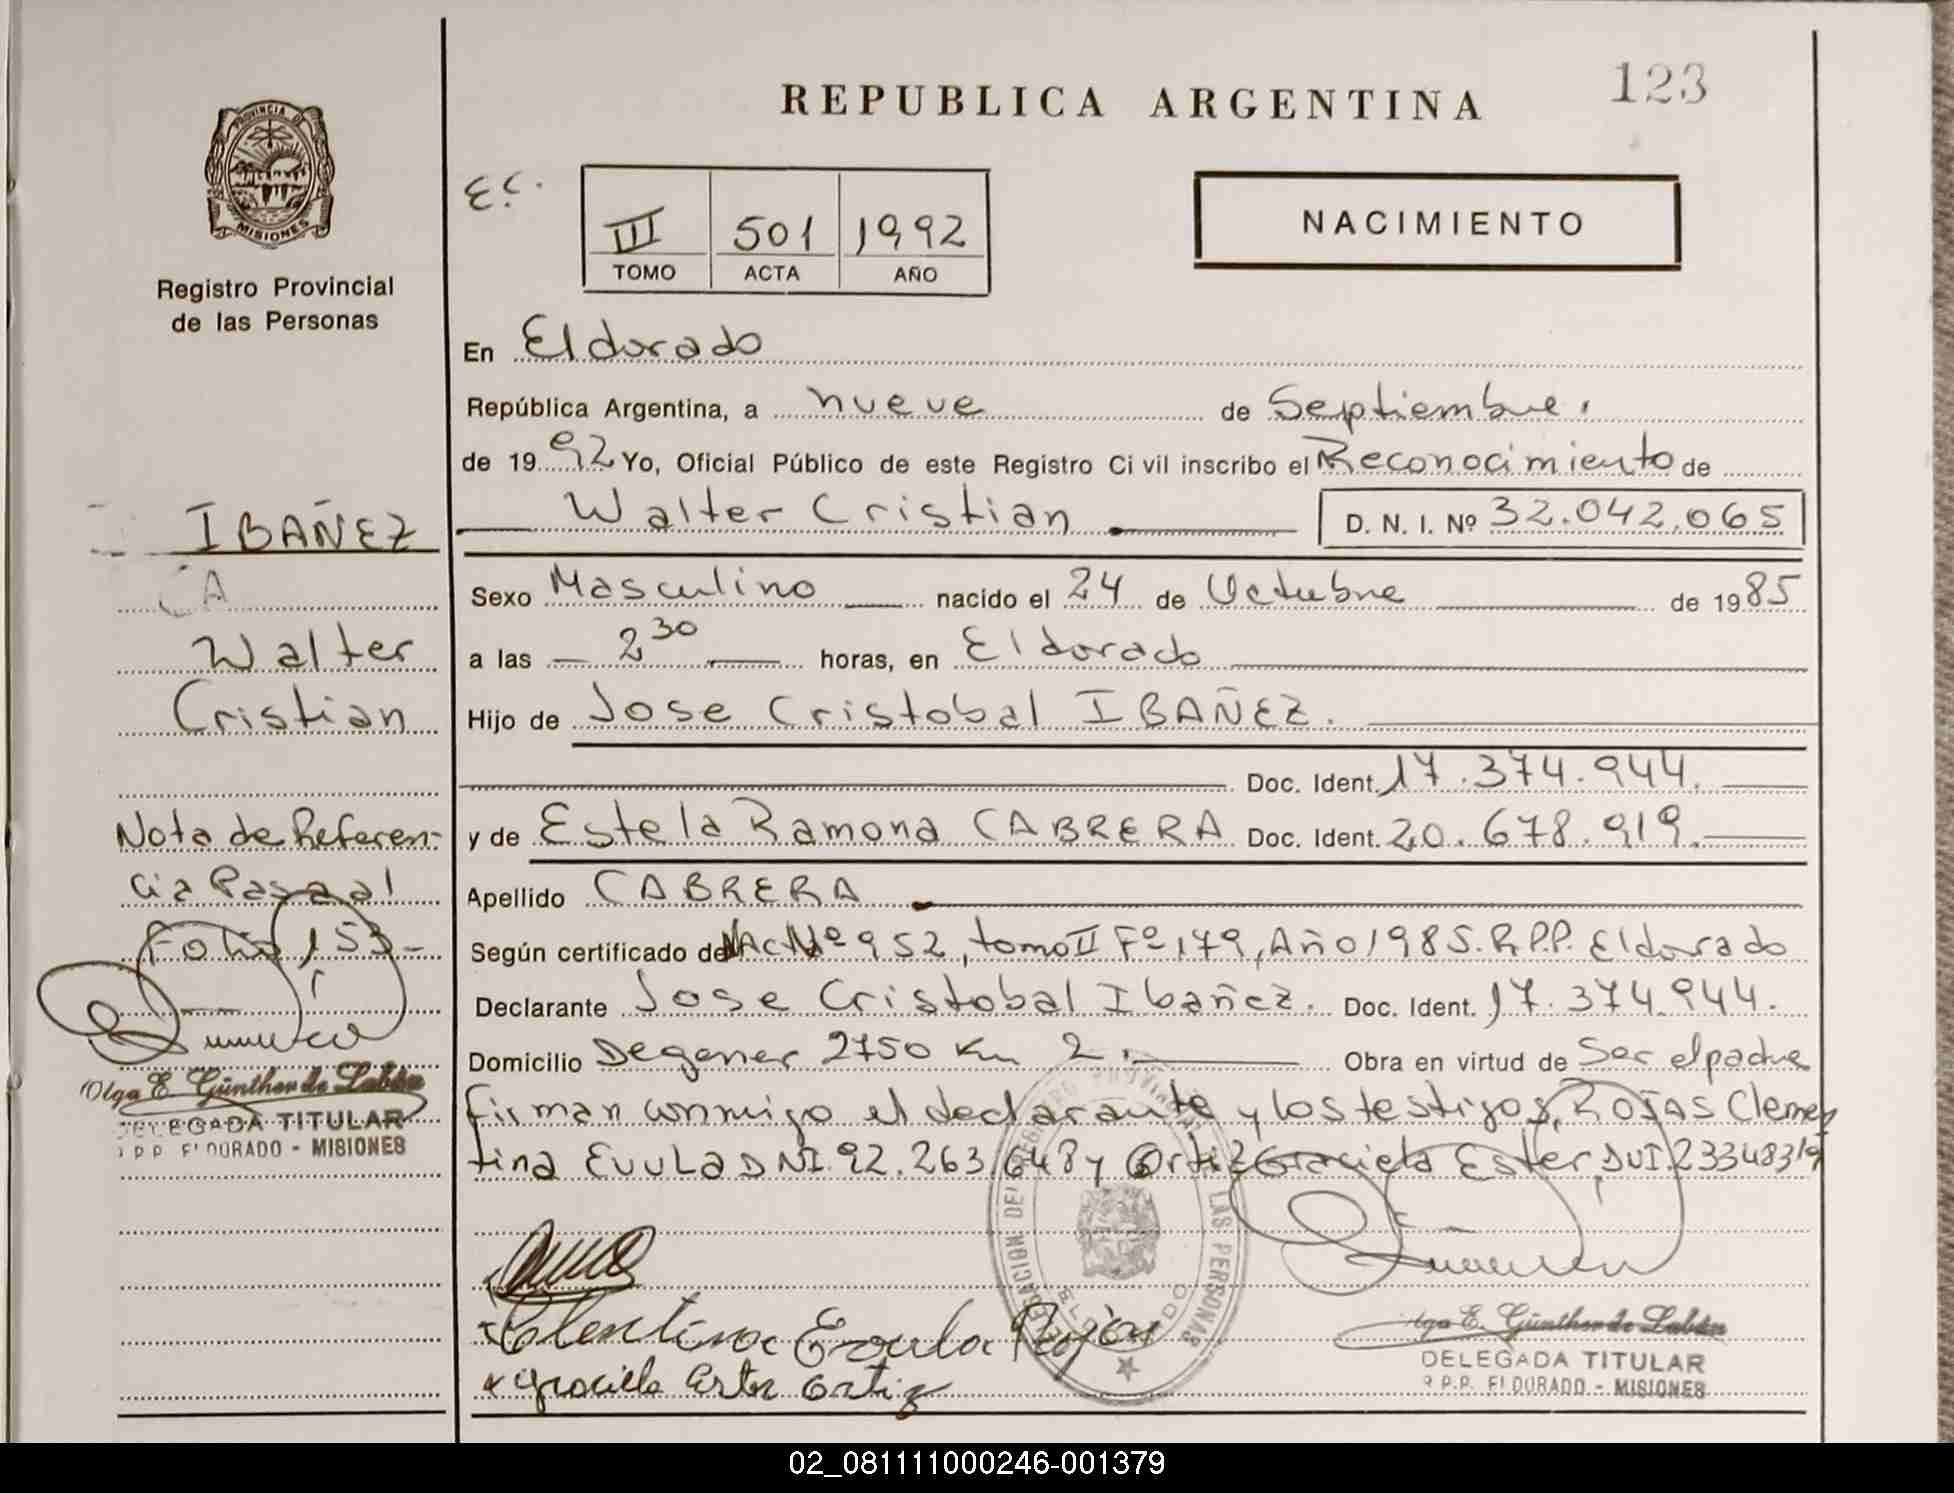 REPUBLICA ARGENTINA
123
PROVINCIA DE
MISIONES
Registro Provincial
de las Personas
E.C.
III 501 1992
TOMO ACTA AÑO
NACIMIENTO
En Eldorado
República Argentina, a nueve de Septiembre.
de 1992 Yo, Oficial Público de este Registro Civil inscribo el Reconocimiento de
Walter Cristian D. N. I. Nº 32.042.065
Sexo Masculino nacido el 24 de Octubre de 1985
a las 2 30 horas, en Eldorado
Hijo de Jose Cristobal IBAÑEZ.
Doc. Ident. 17.374.944.
y de Estela Ramona CABRERA Doc. Ident. 20.678.919.
Apellido CABRERA
Según certificado de Ac Nº 952, tomo II Fº 179, Año 1985. R.P.P. Eldorado
Declarante Jose Cristobal Ibañez. Doc. Ident. 17.374.944.
Domicilio Degener 2750 Km 2. Obra en virtud de Ser el padre
firman conmigo el declarante y los testigos, ROJAS Clemen
tina EVULA DNI. 92.263.648 y Ortiz Graciela Ester DNI.
IBAÑEZ
Walter
Cristian
Nota de Referen-
cia Pasa al
Folio 153-
Olga E. Günther de Labán
DELEGADA TITULAR
R.P.P. ELDORADO - MISIONES
Clementina Evula Rojas
x Graciela Ester Ortiz
LAS PERSONAS
ELDORADO
Olga E. Günther de Labán
DELEGADA TITULAR
R.P.P. ELDORADO - MISIONES
02_081111000246-001379